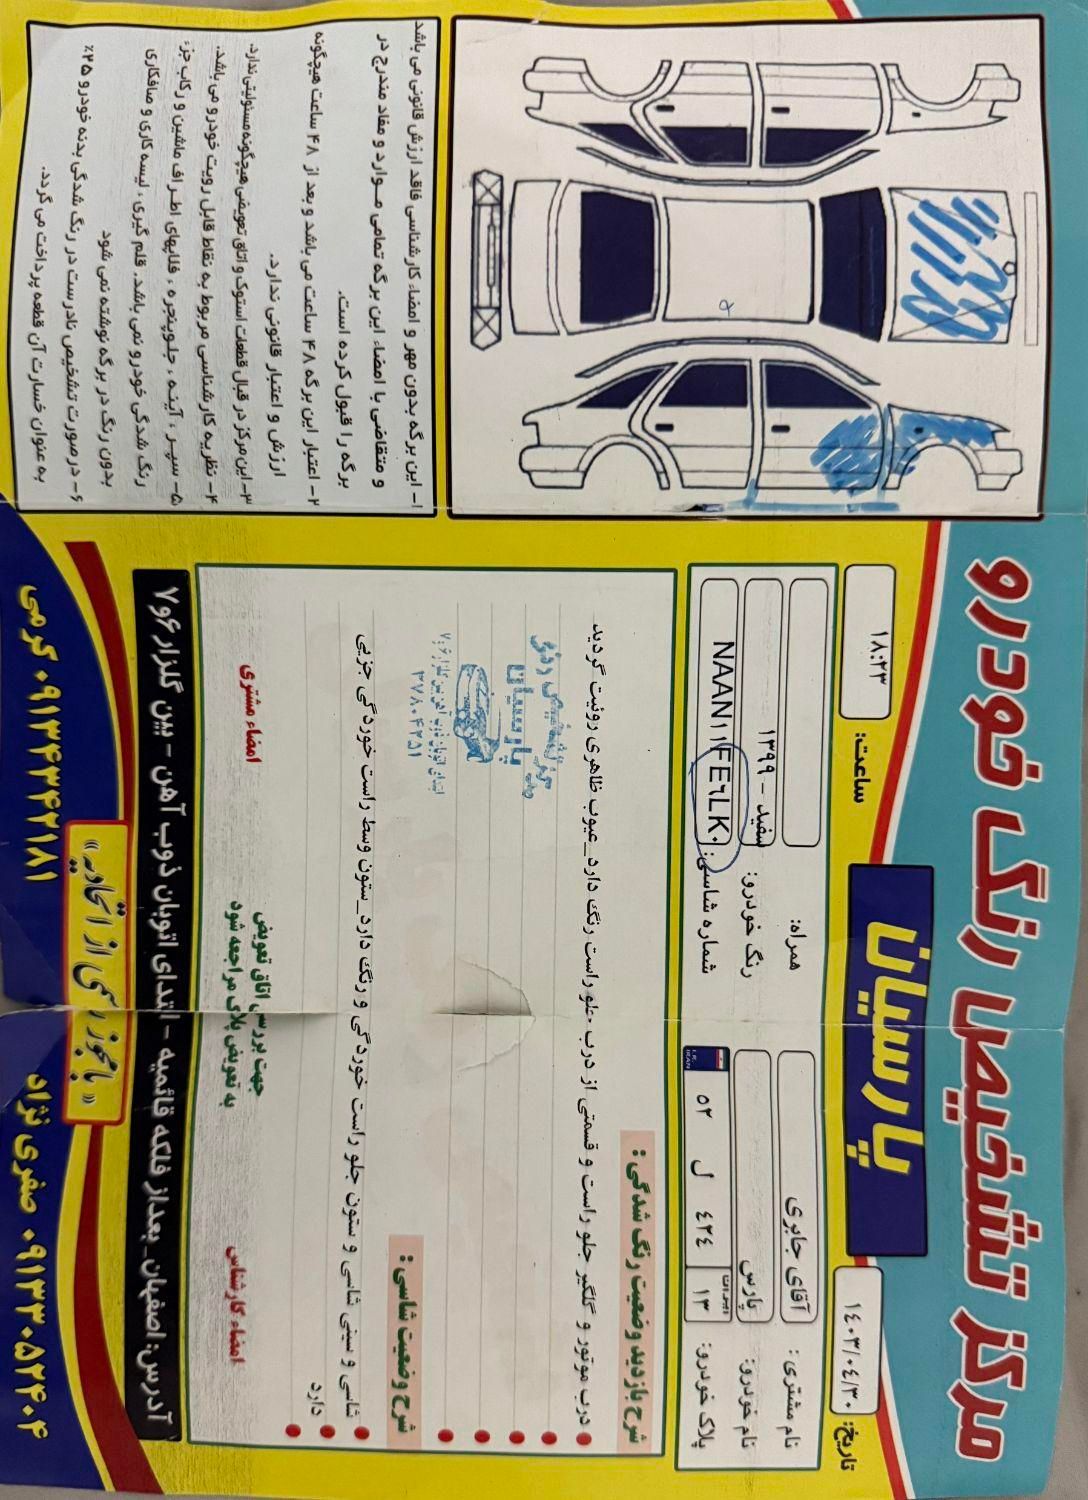 مرکز تشخیص رنگ خودرو
پارسیان
تاریخ: ۱٤۰۳/۰٤/۳۰
ساعت: ۱۸:۲۳
نام مشتری: آقای جابری
همراه:
نام خودرو: پارس
رنگ خودرو: سفید - ۱۳۹۹
پلاک خودرو: ایران ۱۳ ٤۲٤ ل ۵۲
I.R. IRAN
شماره شاسی: NAAN۱۱FE٦LK۰
شرح بازدید وضعیت رنگ شدگی:
درب موتور و گلگیر جلو راست و قسمتی از درب جلو راست رنگ دارد_عیوب ظاهری روئیت گردید
شرح وضعیت شاسی:
شاسی و سینی شاسی و ستون جلو راست خوردگی و رنگ دارد_ستون وسط راست خوردگی جزیی
دارد
پارسیان
۳۷۸۰۴۲۵۱
امضاء کارشناس
جهت بررسی اتاق تعویض
به تعویض پلاک مراجعه شود
امضاء مشتری
آدرس: اصفهان_بعداز فلکه قائمیه - ابتدای اتوبان ذوب آهن - بین گلزار ۶و۷
«با مجوز رسمی از اتحادیه»
۰۹۱۳۳۰۵۲۴۰۴ صفری نژاد
۰۹۱۳۴۳۴۲۱۸۱ کرمی
۱- این برگه بدون مهر و امضاء کارشناسی فاقد ارزش قانونی می باشد
و متقاضی با امضاء این برگه تمامی موارد و مفاد مندرج در
برگه را قبول کرده است.
۲- اعتبار این برگه ۴۸ ساعت می باشد و بعد از ۴۸ ساعت هیچگونه
ارزش و اعتبار قانونی ندارد.
۳- این مرکز در قبال قطعات استوک و اتاق تعویضی هیچگونه مسئولیتی ندارد.
۴- نظریه کارشناسی مربوط به نقاط قابل رویت خودرو می باشد.
۵- سپر، آینه، جلوپنجره، قلابهای اطراف ماشین و رکاب جزء
رنگ شدگی خودرو نمی باشد. قلم گیری، لیسه کاری و صافکاری
بدون رنگ در برگه نوشته نمی شود
۶- در صورت تشخیص نادرست در رنگ شدگی بدنه خودرو ۲۵٪
به عنوان خسارت آن قطعه پرداخت می گردد.